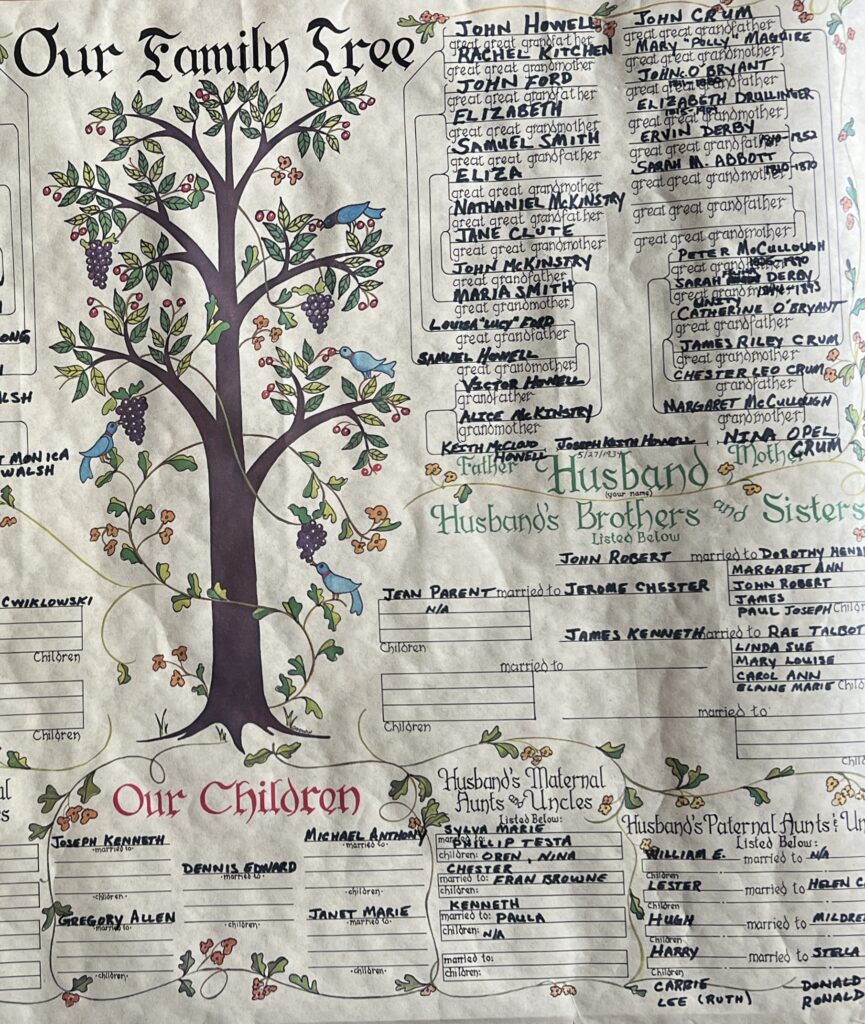 Our Family Tree
JOHN HOWELL
great great grandfather
RACHEL KITCHEN
great great grandmother
JOHN FORD
great great grandfather
ELIZABETH
great great grandmother
SAMUEL SMITH
great great grandfather
ELIZA
great great grandmother
NATHANIEL McKINSTRY
great great grandfather
JANE CLUTE
great great grandmother
JOHN McKINSTRY
great grandfather
MARIA SMITH
great grandmother
LOUISA "LUCY" FORD
great grandfather
SAMUEL HOWELL
great grandmother
VICTOR HOWELL
grandfather
ALICE McKINSTRY
grandmother
KEITH McCLOUD HOWELL
Father
JOHN CRUM
great great grandfather
MARY "POLLY" MAGUIRE
great great grandmother
JOHN O'BRYANT
great great grandfather
ELIZABETH DRULLINGER
great great grandmother
ERVIN DERBY
great great grandfather 1810-1852
SARAH M. ABBOTT
great great grandmother 1810-1870
great great grandfather
great great grandmother
PETER McCULLOUGH
great grandfather
SARAH DERBY
great grandmother
UNITY
CATHERINE O'BRYANT
great grandfather
JAMES RILEY CRUM
great grandmother
CHESTER LEO CRUM
grandfather
MARGARET McCULLOUGH
grandmother
NINA OPEL CRUM
Mother
JOSEPH KEITH HOWELL
5/27/1937
Husband
(your name)
Husband's Brothers and Sisters
Listed Below
JOHN ROBERT married to DOROTHY
MARGARET ANN
JOHN ROBERT
JAMES
PAUL JOSEPH
JEAN PARENT married to JEROME CHESTER
N/A
Children
JAMES KENNETH married to RAE TALBOT
LINDA SUE
MARY LOUISE
CAROL ANN
ELAINE MARIE
married to
Children
married to
ONG
LSH
MONICA
WALSH
CWIKLOWSKI
Children
Children
Our Children
JOSEPH KENNETH
married to:
children
DENNIS EDWARD
married to:
children
MICHAEL ANTHONY
married to:
children
GREGORY ALLEN
married to:
children
JANET MARIE
married to:
children
Husband's Maternal
Aunts & Uncles
Listed Below:
SYLVA MARIE
married to: PHILLIP TESTA
children: OREN, NINA
CHESTER
married to: FRAN BROWNE
children:
KENNETH
married to: PAULA
children: N/A
married to:
children:
Husband's Paternal Aunts &
Listed Below:
WILLIAM E. married to N/A
Children
LESTER married to HELEN
Children
HUGH married to
Children
HARRY married to STELLA
Children
CARRIE
LEE (RUTH)
DONALD
RONALD